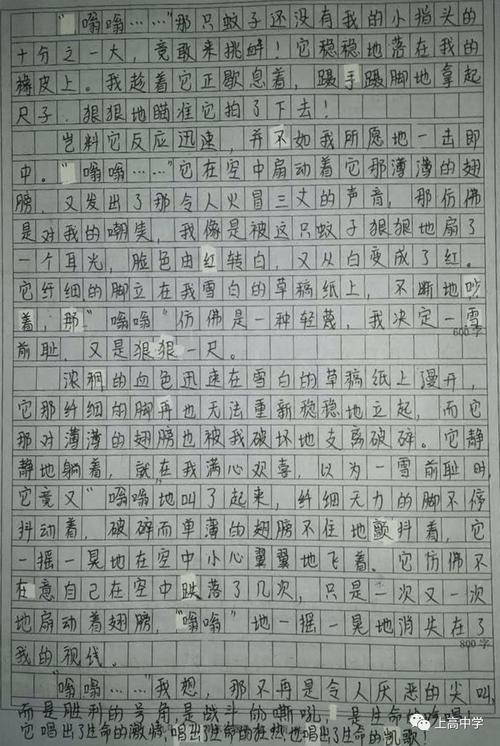 “嗡嗡……”那只蚊子还没有我的小指头的
十分之一大，竟敢来挑衅！它稳稳地落在我的
橡皮上。我趁着它正歇息着，蹑手蹑脚地拿起
尺子，狠狠地瞄准它拍了下去！
岂料它反应迅速，并不如我所愿地一击即
中。“嗡嗡……”它在空中扇动着它那薄薄的翅
膀，又发出了那令人火冒三丈的声音，那仿佛
是对我的嘲笑，我像是被这只蚊子狠狠地扇了
一个耳光，脸色由红转白，又从白变成了红。
它纤细的脚立在我雪白的草稿纸上，不断地吵
着，那“嗡嗡”仿佛是一种轻蔑，我决定一雪
600字
前耻，又是狠狠一尺。
浓稠的血色迅速在雪白的草稿纸上漫开，
它那纤细的脚再也无法重新稳稳地立起，而它
那对薄薄的翅膀也被我破坏地支离破碎。它静
静地躺着，就在我满心欢喜，以为一雪前耻时，
它竟又“嗡嗡”地叫了起来，纤细无力的脚不停
抖动着，破碎而单薄的翅膀不住地颤抖着，它
一摇一晃地在空中小心翼翼地飞着。它仿佛不
在意自己在空中跌落了几次，只是一次又一次
地扇动着翅膀，“嗡嗡”地一摇一晃地消失在了
800字
我的视线。
“嗡嗡……”我想，那不再是令人厌恶的尖叫，
而是胜利的号角是战斗的嘶吼，是生命的
它唱出了生命的激情，唱出了生命的狂热也唱出了生命的凯歌！
上高中学